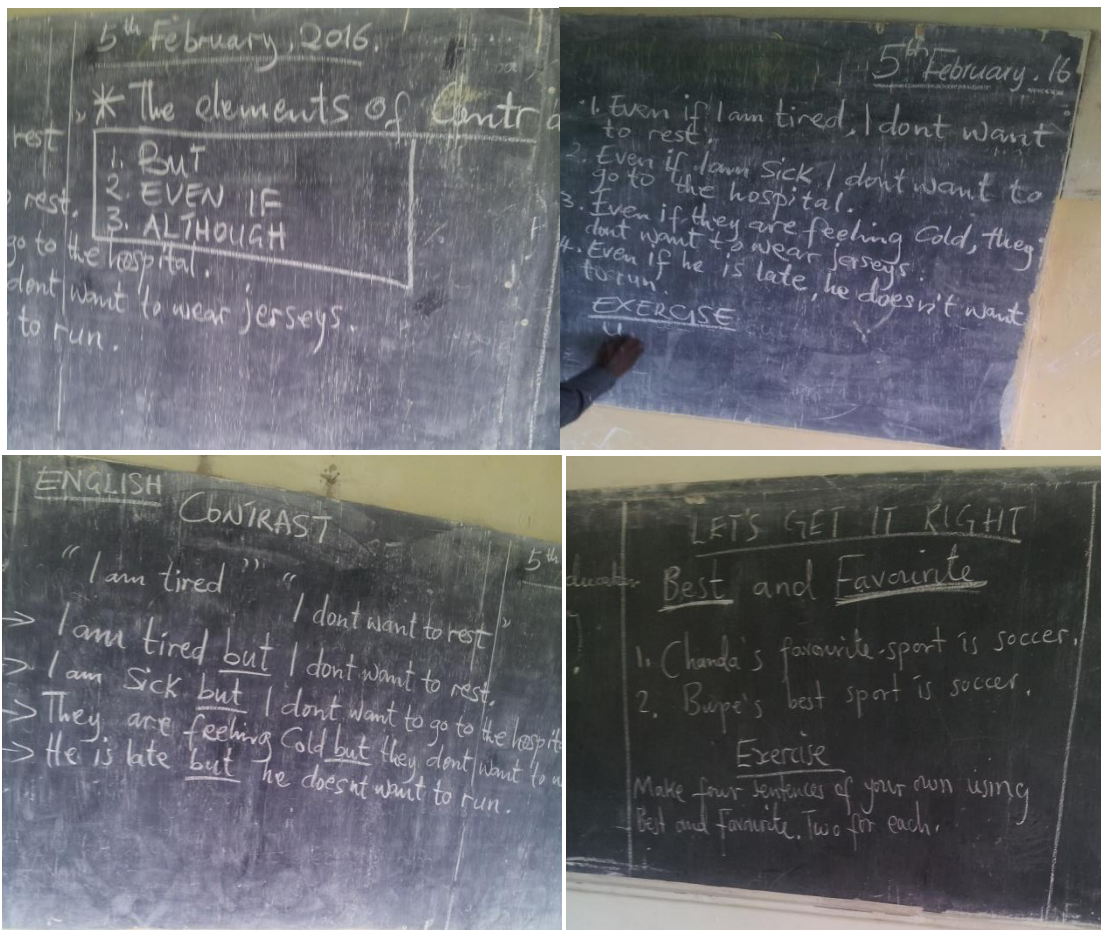 5th February, 2016.
* The elements of Contra
rest"
1. BUT
2. EVEN IF
3. ALTHOUGH
rest.
go to the hospital.
dont want to wear jerseys.
to run.
5th February. 16
1. Even if I am tired, I dont want
to rest.
2. Even if I am sick I dont want to
go to the hospital.
3. Even if they are feeling Cold, they
dont want to wear jerseys.
4. Even if he is late, he doesn't want
to run.
EXERCISE
ENGLISH
CONTRAST
5th
"I am tired" "I dont want to rest"
→ I am tired but I dont want to rest.
→ I am sick but I dont want to go to the hospita
→ They are feeling Cold but they dont want to w
→ He is late but he doesnt want to run.
LET'S GET IT RIGHT
Best and Favourite
1. Chanda's favourite sport is soccer.
2. Bupe's best sport is soccer.
Exercise
Make four sentences of your own using
Best and Favourite. Two for each.